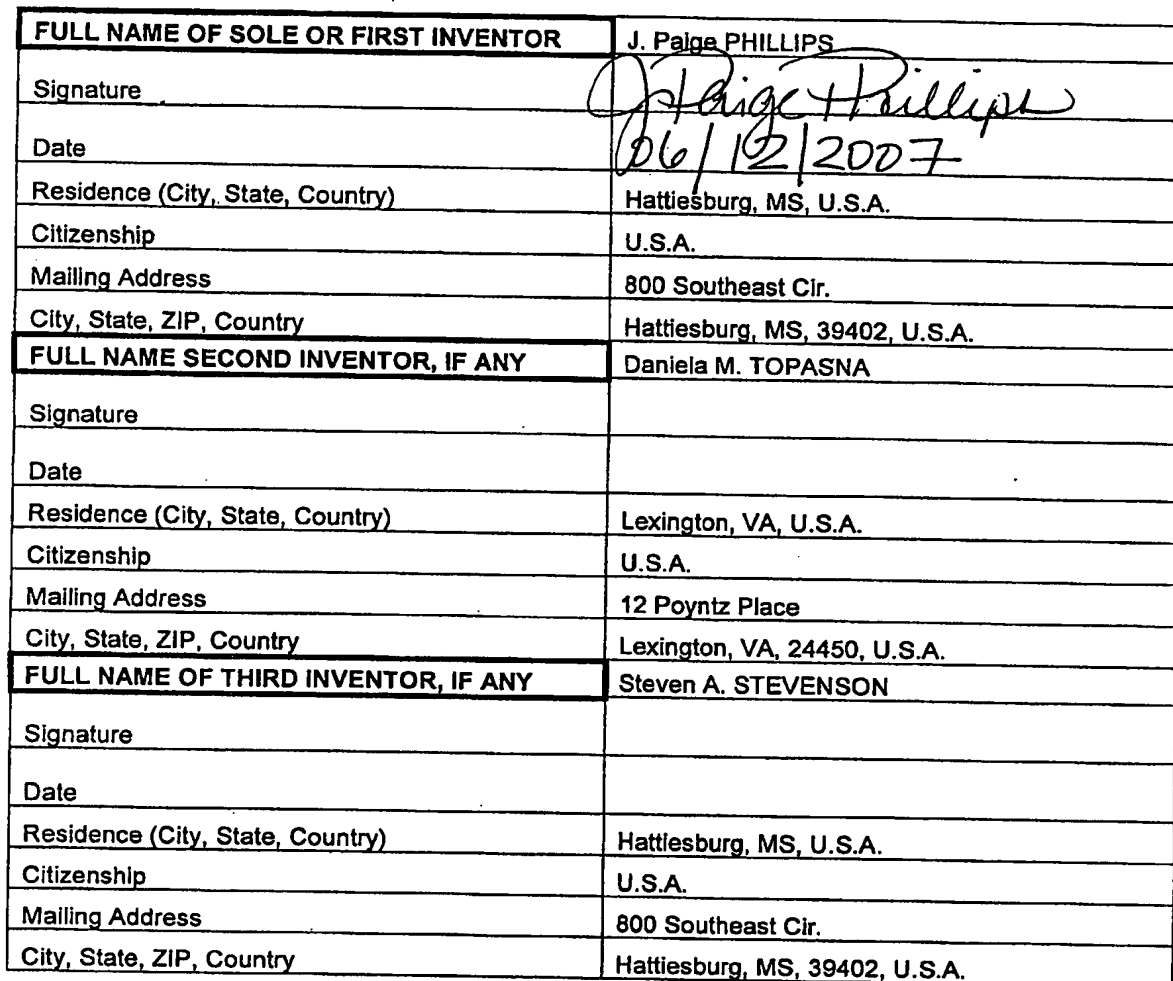 FULL NAME OF SOLE OR FIRST INVENTOR J. Paige PHILLIPS
Signature J Paige Phillips
Date 06/12/2007
Residence (City, State, Country) Hattiesburg, MS, U.S.A.
Citizenship U.S.A.
Mailing Address 800 Southeast Cir.
City, State, ZIP, Country Hattiesburg, MS, 39402, U.S.A.
FULL NAME SECOND INVENTOR, IF ANY Daniela M. TOPASNA
Signature
Date
Residence (City, State, Country) Lexington, VA, U.S.A.
Citizenship U.S.A.
Mailing Address 12 Poyntz Place
City, State, ZIP, Country Lexington, VA, 24450, U.S.A.
FULL NAME OF THIRD INVENTOR, IF ANY Steven A. STEVENSON
Signature
Date
Residence (City, State, Country) Hattiesburg, MS, U.S.A.
Citizenship U.S.A.
Mailing Address 800 Southeast Cir.
City, State, ZIP, Country Hattiesburg, MS, 39402, U.S.A.